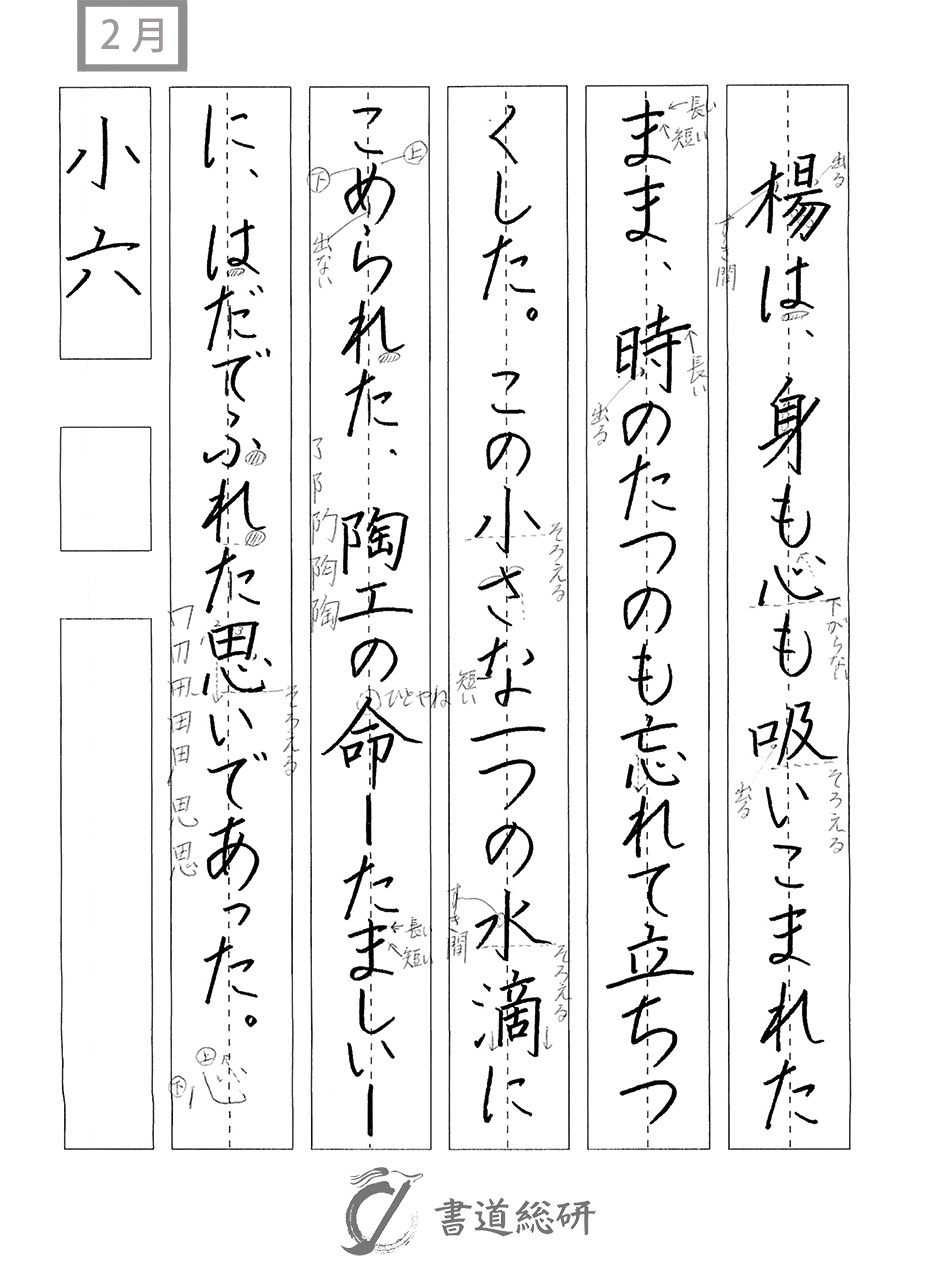 2月
楊は、身も心も吸いこまれた
まま、時のたつのも忘れて立ちつ
くした。この小さな一つの水滴に
こめられた、陶工の命ーたましいー
に、はだでふれた思いであった。
小六
出る
すき間
下がらない
そろえる
出る
長い
短い
長い
出る
そろえる
短い
すき間
そろえる
上
下
出ない
陶
陶
ひとやね
長い
短い
そろえる
田
思
思
上
下
心
書道総研